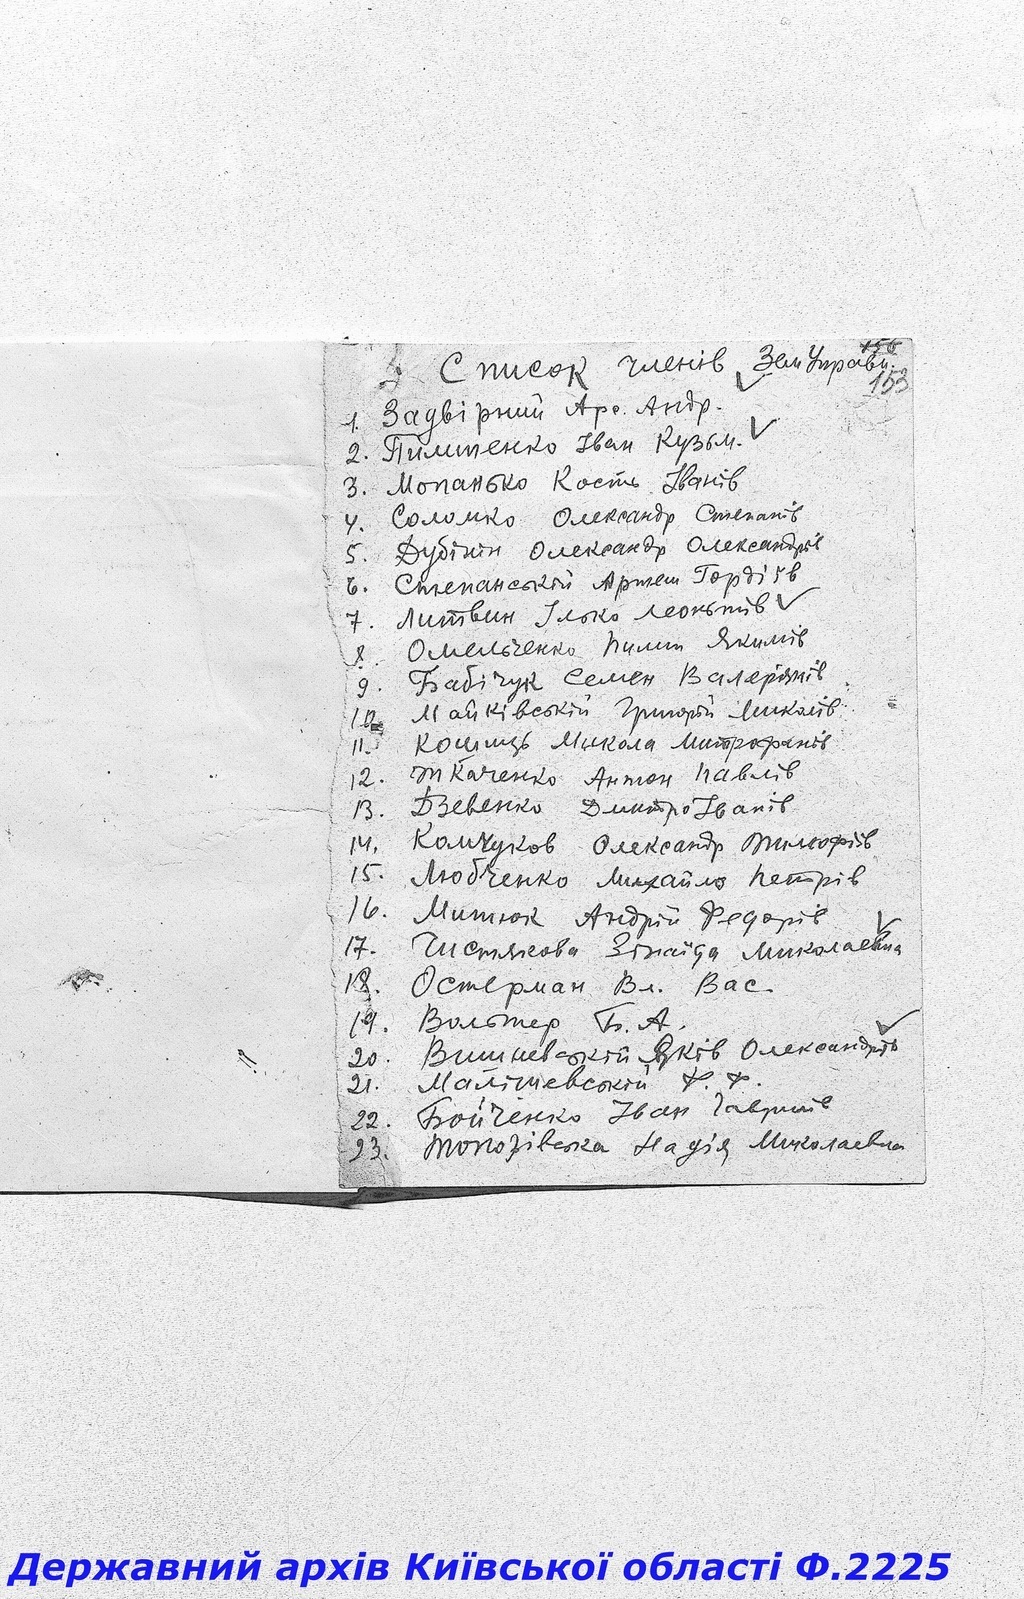 156
Список членів ЗемУправи.
153
1. Задвірний Арс. Андр.
2. Пимтенко Іван Кузьм.
3. Мопанько Кость Іванів
4. Соломко Олександр Степанів
5. Дубінін Олександр Олександрів
6. Степанській Артем Гордіїв
7. Литвин Ілько Леонтів
8. Омельченко Пилип Якимів
9. Бабічук Семен Валеріянів
10. Майківській Григорій Миколів
11. Микола Митрофанів
12. Ткаченко Антон Павлів
13. Дзевенко Дмитро Іванів
14. Комчуков Олександр Тимофіїв
15. Любченко Михайло Петрів
16. Митюк Андрій Федорів
17. Чистякова Зінаїда Миколаевна
18. Остерман Вл. Вас.
19. Вольтер Б. А.
20. Вишневській Яків Олександрів
21. Малішевській Ф. Ф.
22. Бойченко Іван Гаврилів
23. Топорівська Надія Миколаевна
Державний архів Київської області Ф.2225